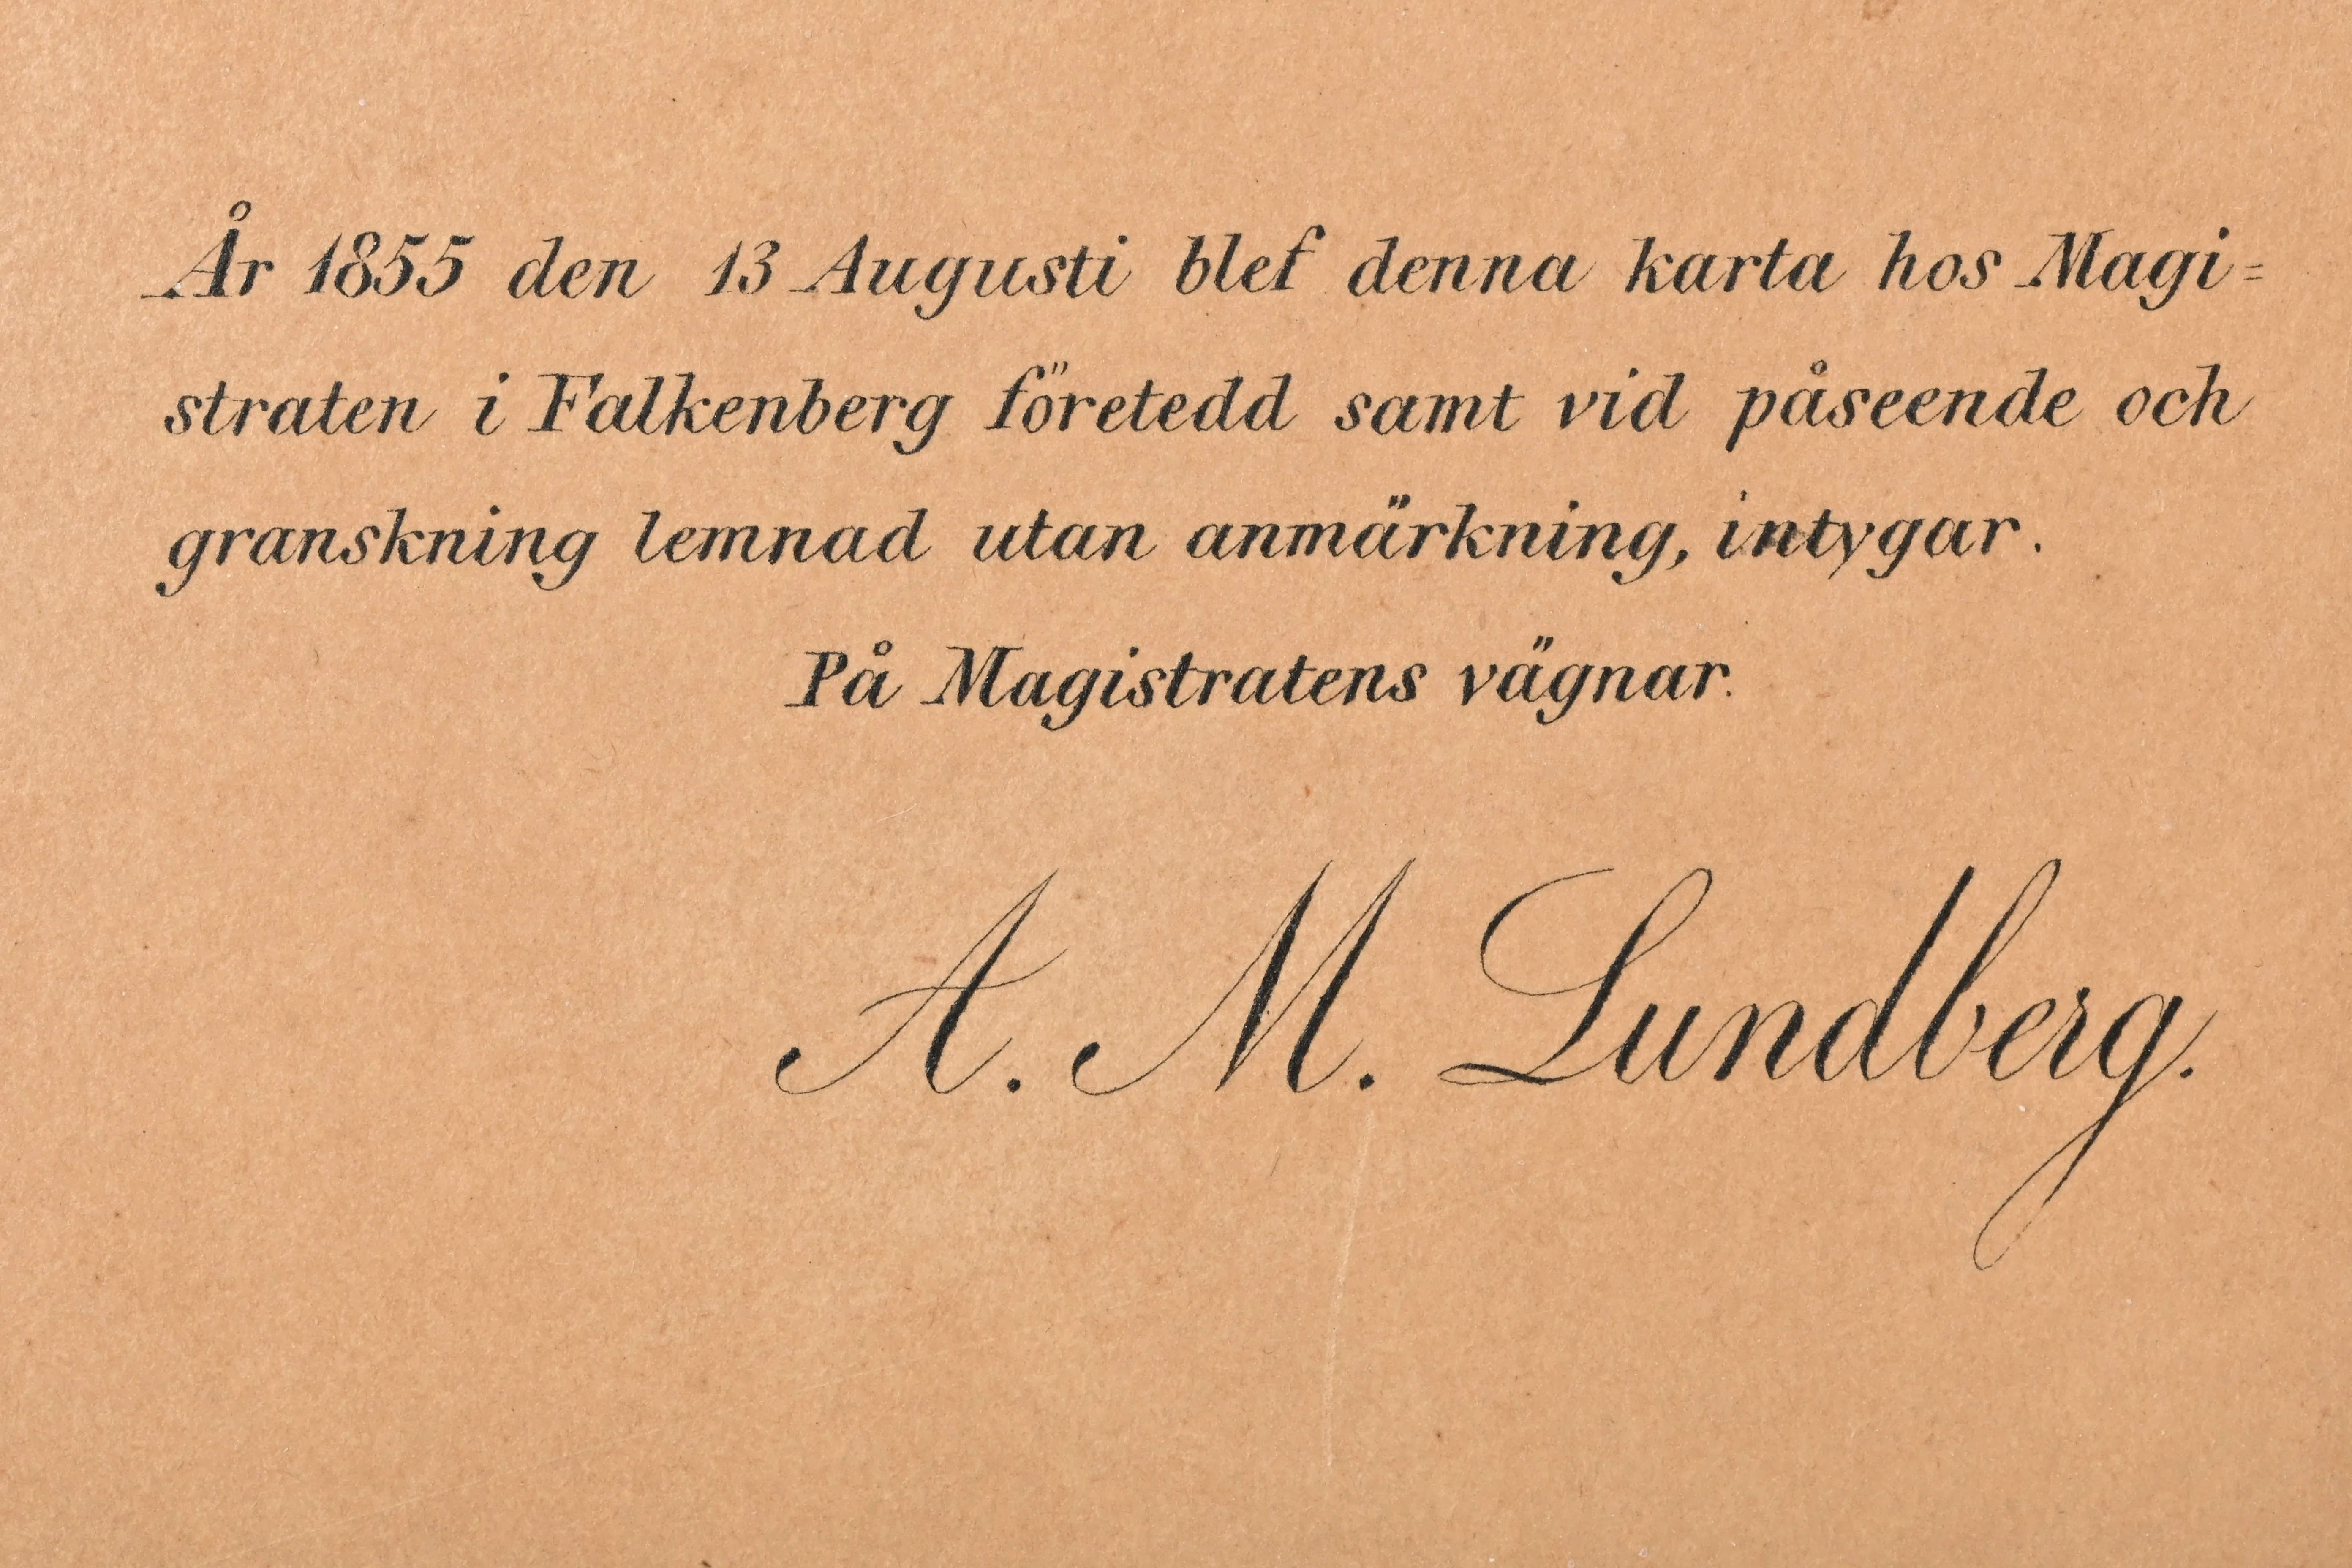 År 1855 den 13 Augusti blef denna karta hos Magi=
straten i Falkenberg företedd samt vid påseende och
granskning lemnad utan anmärkning, intygar.
På Magistratens vägnar.
A. M. Lundberg.